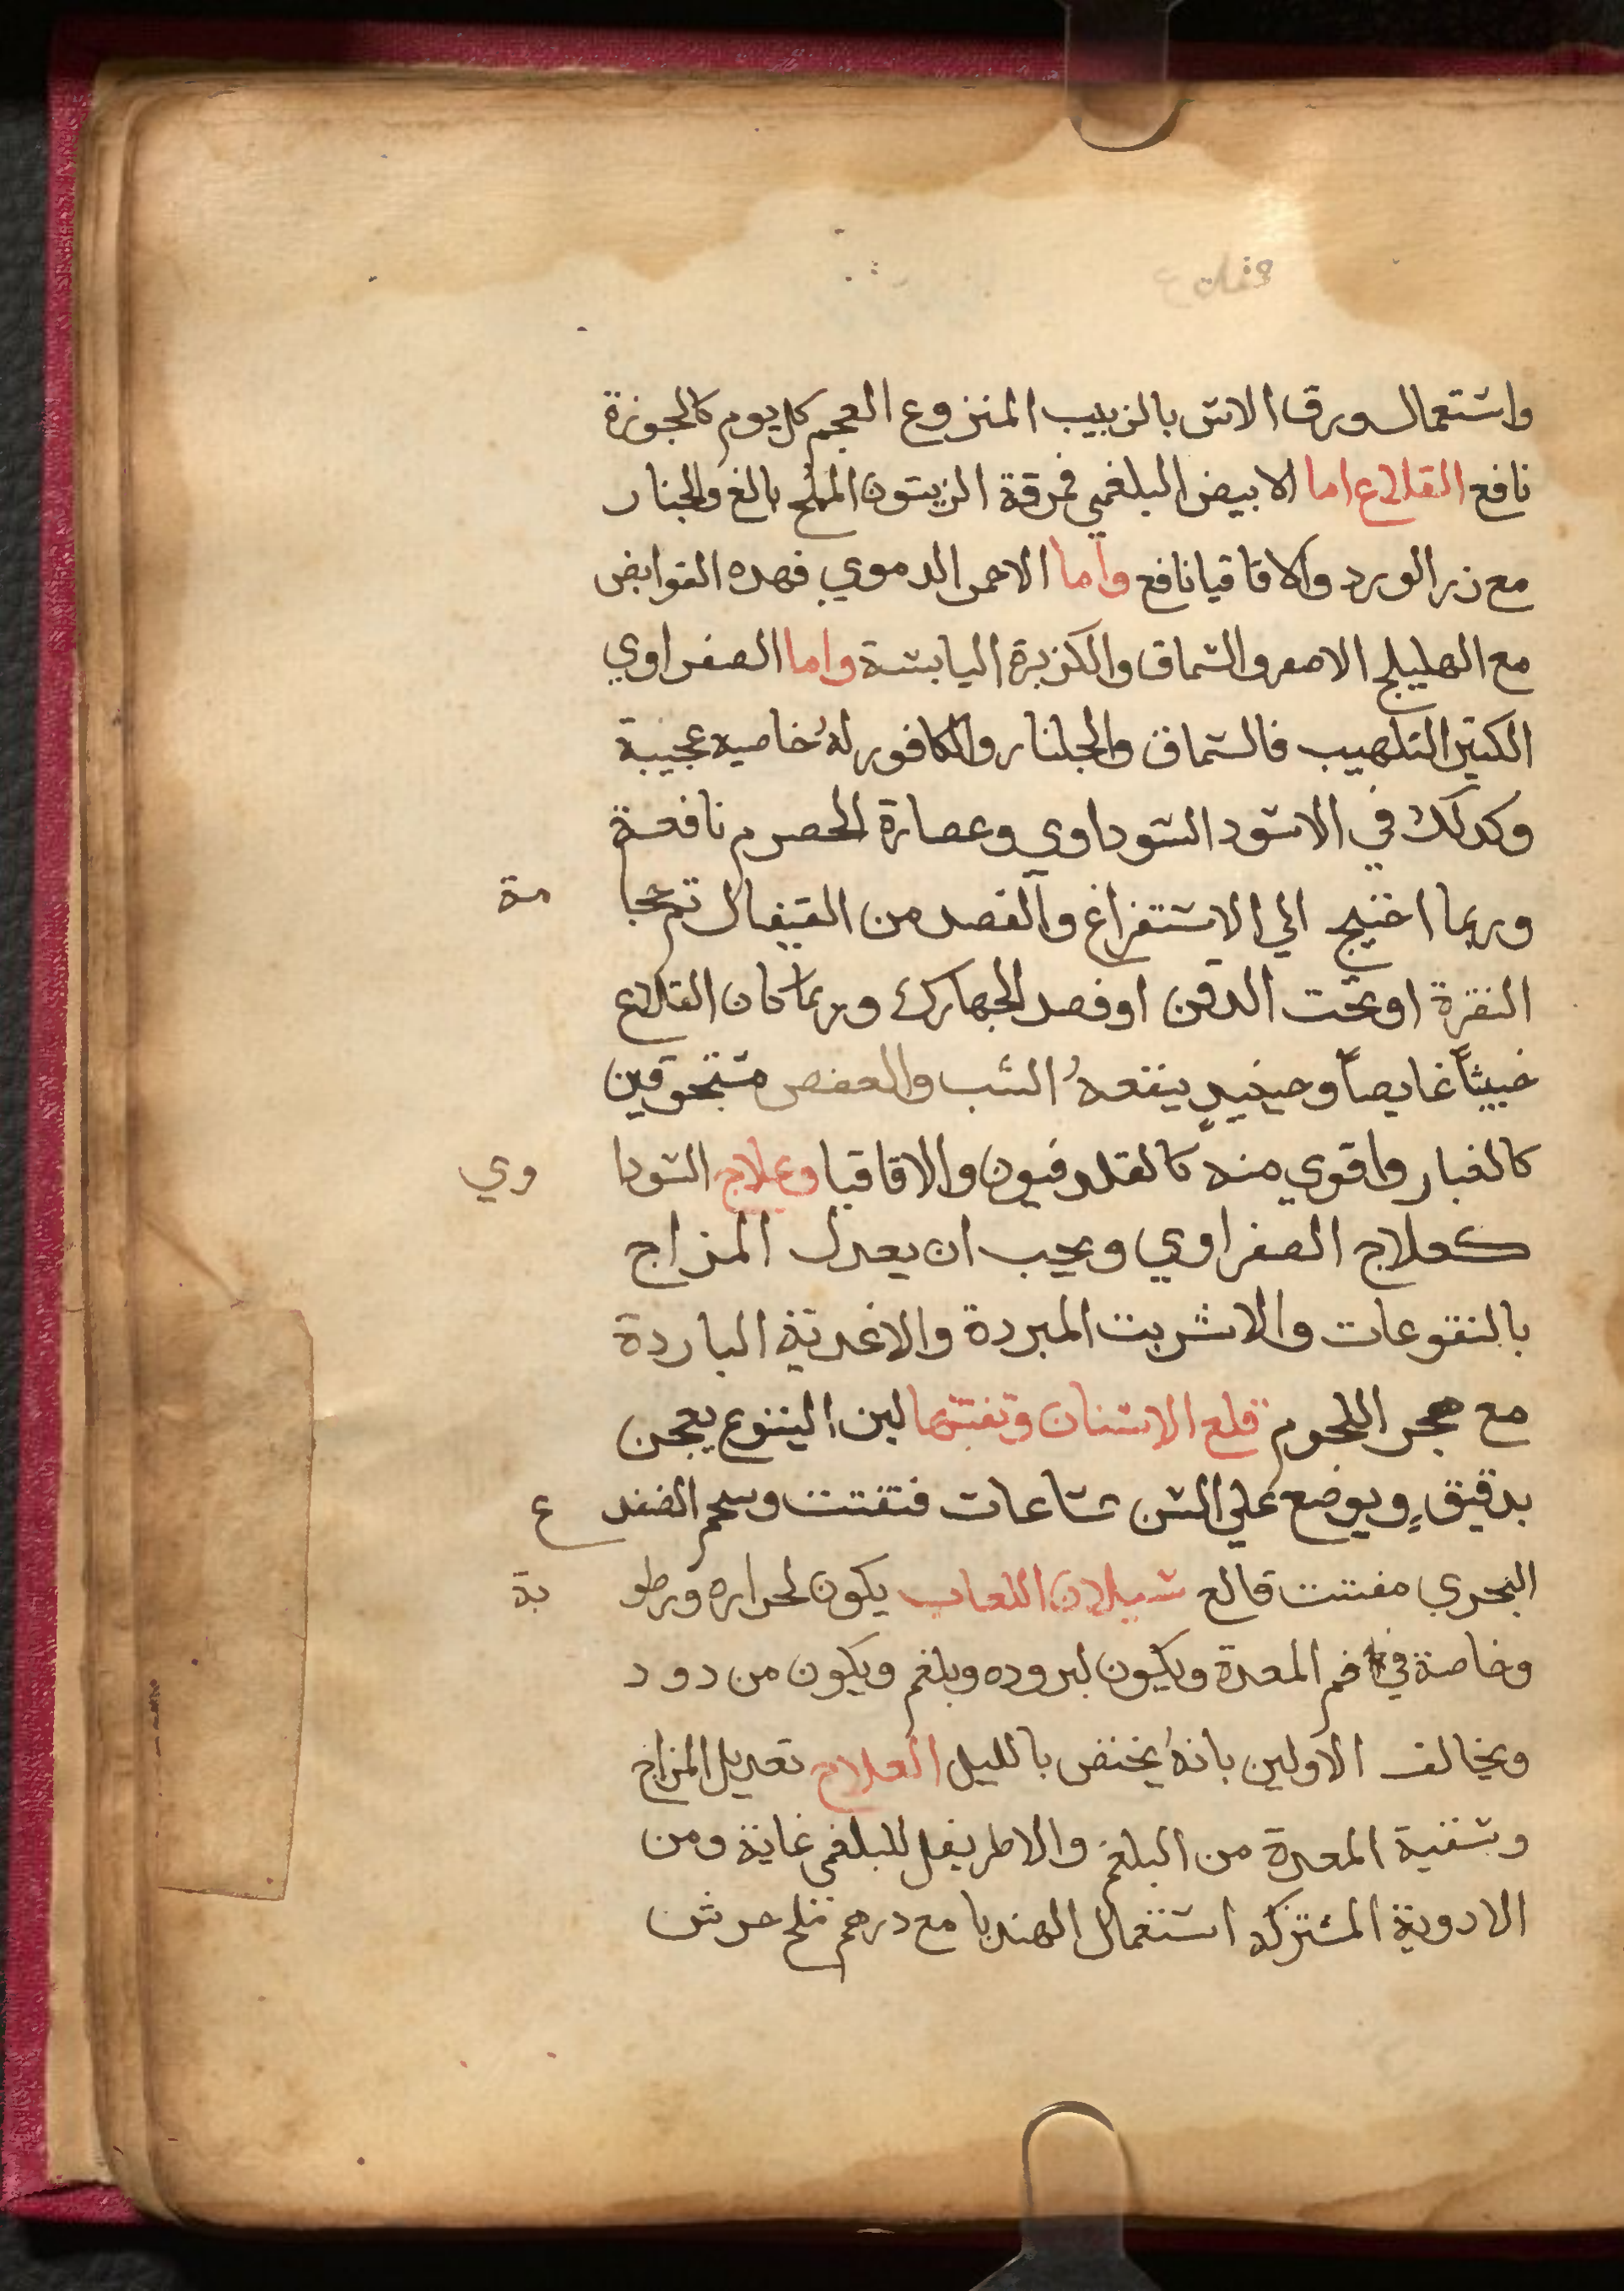 واستعمال ورق الاس بالزبيب المنزوع العجم كل يوم كالجوزة
نافع القلاع اما الابيض البلغمي فمرقة الزيتون المملح بالغ والجلنار
مع زر الورد والاقاقيا نافع واما الاحمر الدموي فهذه القوابض
مع الهليلج الاصفر والسماق والكزبرة اليابسة واما الصفراوي
الكثير التلهيب فالسماق والجلنار والكافور له خاصيه عجيبة
وكدلك في الاسود السوداوي وعصارة الحصرم نافعة
وربما احتيج الي الاستفراغ والفصد من القيفال ثم حجا مة
النقرة او تحت الدقن او فصد الجهارك وربما كان القلاع
خبيثاً غايصاً وحينيدٍ ينفعهُ الشب والعفص مسحوقين
كالغبار واقوي منه كالقلدفيون والاقاقيا وعلاج السودا وي
كعلاج الصفراوي ويجب ان يعدل المزاج
بالنقوعات والاشربت المبردة والاغدية الباردة
مع هجر اللحوم قلع الاسنان وتفتتها لبن اليتوع يعجن
بدقيقٍ ويوضع علي السن ساعات فتفتت وشحم الضفد ع
البحري مفتت قالع سيلان اللعاب يكون لحراره ورطو بة
وخاصة في فم المعدة ويكون لبروده وبلغم ويكون من دود
ويخالف الاولين بانهُ يختص بالليل العلاج تعديل المزاج
وتنقية المعدة من البلغم والاطريفل للبلغمي غاية ومن
الادوية المشتركه استعمال الهندبا مع درهم ملح جرش